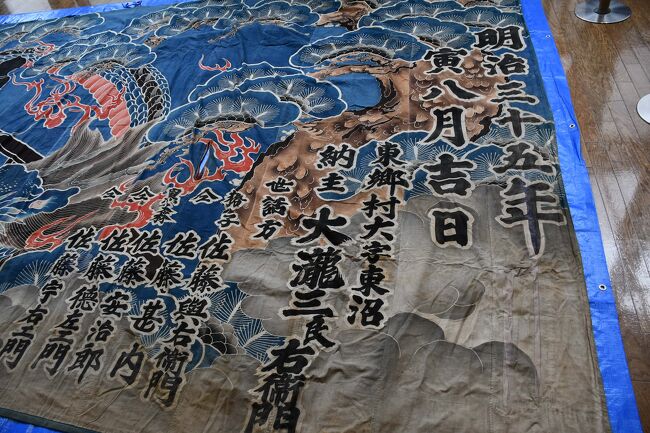 明治三十五年
寅八月吉日
東郷村大字東沼
納主 大瀧三良右衛門
世話方
佐藤與右衛門
佐藤甚内
佐藤安治郎
佐藤德左エ門
佐藤宇右エ門